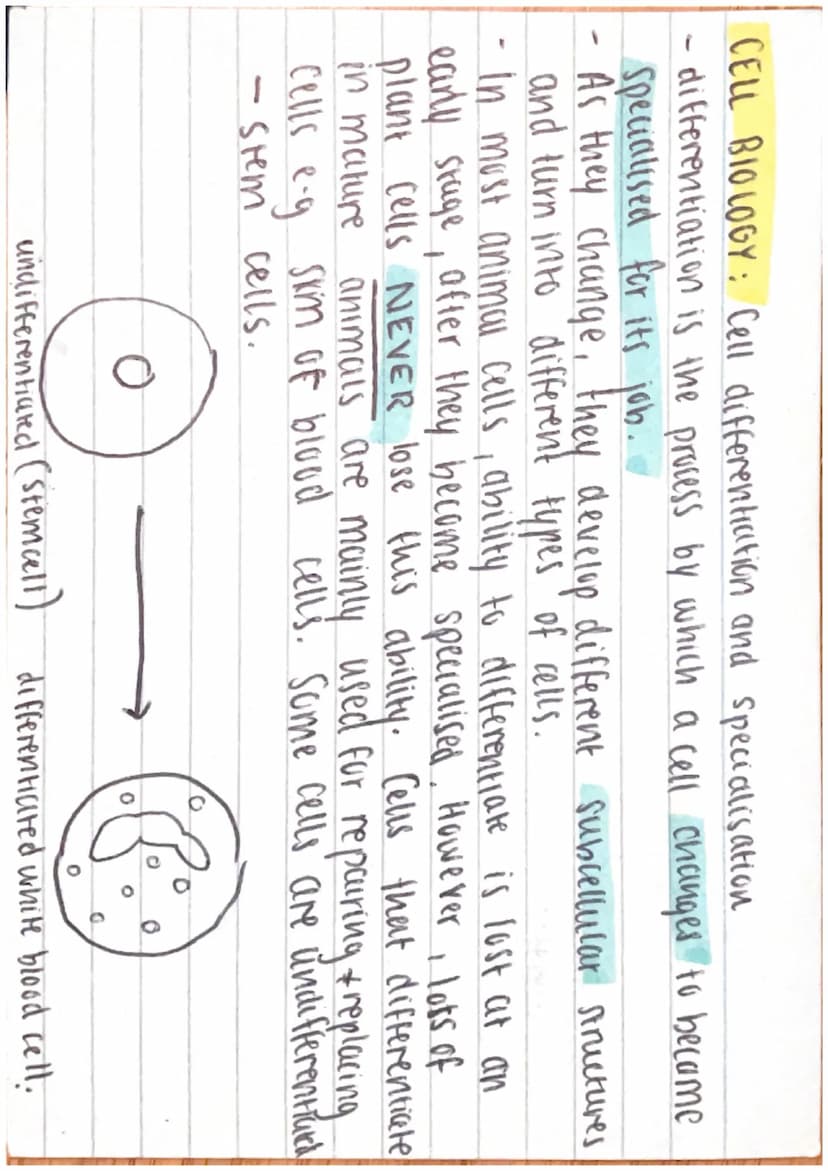 CELL BIOLOGY: Cell differentiation and specialisation
- differentiation is the process by which a cell changes to become
specialised for its job.
- As they change, they develop different subcellular structures
and turn into different types of cells.
- In most animal cells, ability to differentiate is lost at an
early stage, after they become specialised. However, lots of
plant cells NEVER lose this ability. Cells that differentiate
in mature animals are mainly used for repairing + replacing
cells e.g skin of blood cells. Some cells are undifferentiated
- stem cells.
undifferentiated (stem cell)
differentiated white blood cell.